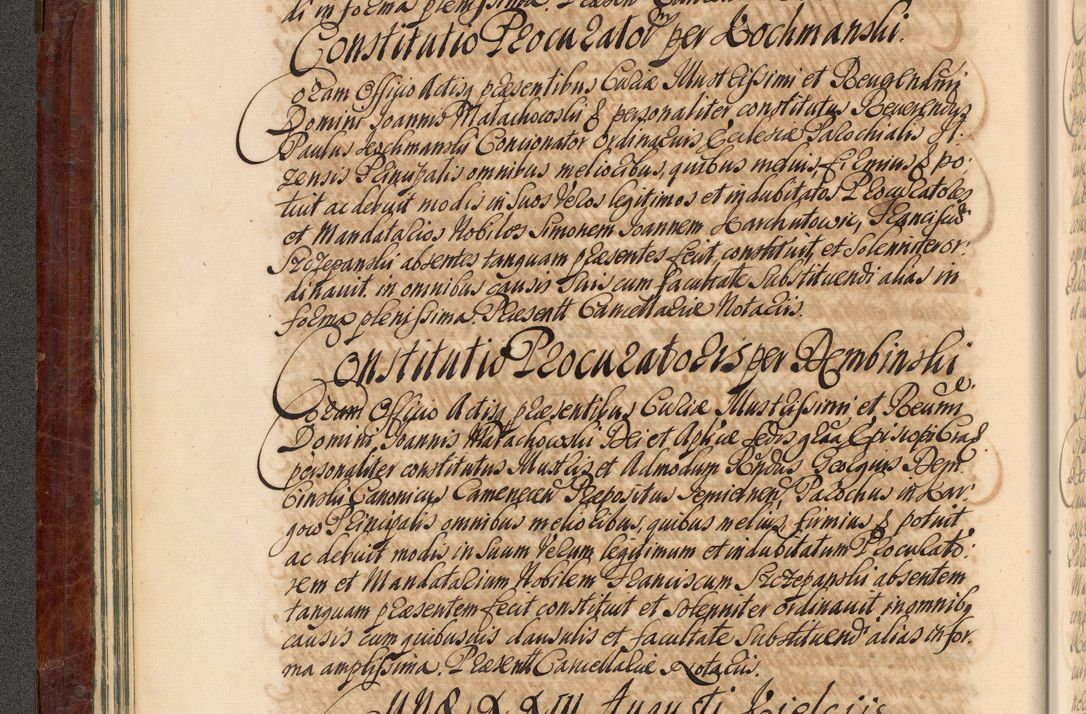 di in forma plenissima. Praesen Cancell
Constitutio Procurator per Kochmanski.
Coram Officio Actisq praesentibus Curiae Illustrissimi et Reuerendissimi
Domini Joannis Małachowski & personaliter constitutus Reuerendus
Paulus Kochmanski Concionator Ordinarius Ecclesiae Parochialis
zensis Principalis omnibus melioribus, quibus melius, firmius & po:
tuit ac debuit modis in suos Veros legitimos et indubitatos Procuratores
et Mandatarios Nobiles Simonem Joannem Karchutowic, Franciscu
Szczepanski absentes tanquam praesentes fecit constituit, et solemniter or:
dinauit in omnibus causis suis cum facultate substituendi alias in
forma plenissima. Praesentt Cancellariae Notariis.
Constitutio Procuratoris per Dembinski
Coram Officio Actisq praesentibus Curiae Illustrissimi et Reumi
Domini, Joannis Małachowski Dei et Aplicae Sedis graa Episcopi Crac
personaliter constitutus Illustris et Admodum Rndus Georgius Dem
binski Canonicus Camenecen Praepositus Parochus in Kar:
gow Principalis omnibus melioribus, quibus melius, firmius & potuit
ac debuit modis in suum Verum legitimum et indubitatum Procurato:
rem et Mandatarium Nobilem Franciscum Szczepanski absentem
tanquam praesentem fecit constituit et solenniter ordinauit in omnibq
causis cum quibusuis clausulis et facultate substituendi alias in for
ma amplissima. Praesentt Cancellariae Notariis.
Augusti Kielciis